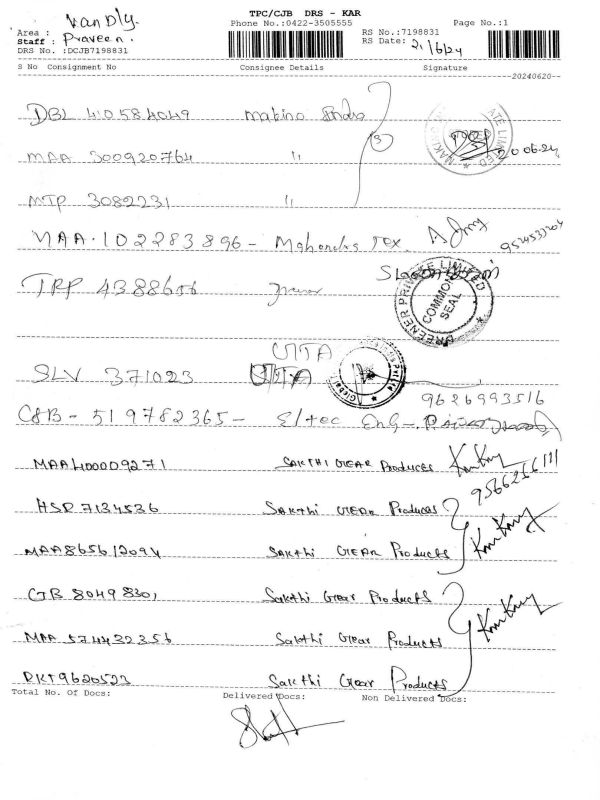 TPC/CJB DRS - KAR
Van Dly.
Area :
Phone No.:0422-3505555
Page No.:1
Staff : Praveen.
RS No.:7198831
DRS No. :DCJB7198831
RS Date: 21/6/24
S No Consignment No Consignee Details Signature
20240620
DBL 410584049 Makino India
MAA 300920764 "
3
20.06.24
MTP 3082231 "
MAA.102283896 - Mahendra Tex.
TRP 4388656
GREENER PRIVATE LIMITED
COMMON SEAL
SLV 371023
9626993516
CSB - 519782365 - Eltec Eng -
MAA400009271 SAKTHI GEAR Products
9566256111
HSR 7134536 Sakthi GEAR Products
MAA865612094 Sakthi GEAR Products
GB 80498301 Sakthi Gear Products
MAA 574432356 Sakthi Gear Products
PKT9620523 Sakthi Gear Products
Total No. Of Docs: Delivered Docs: Non Delivered Docs: